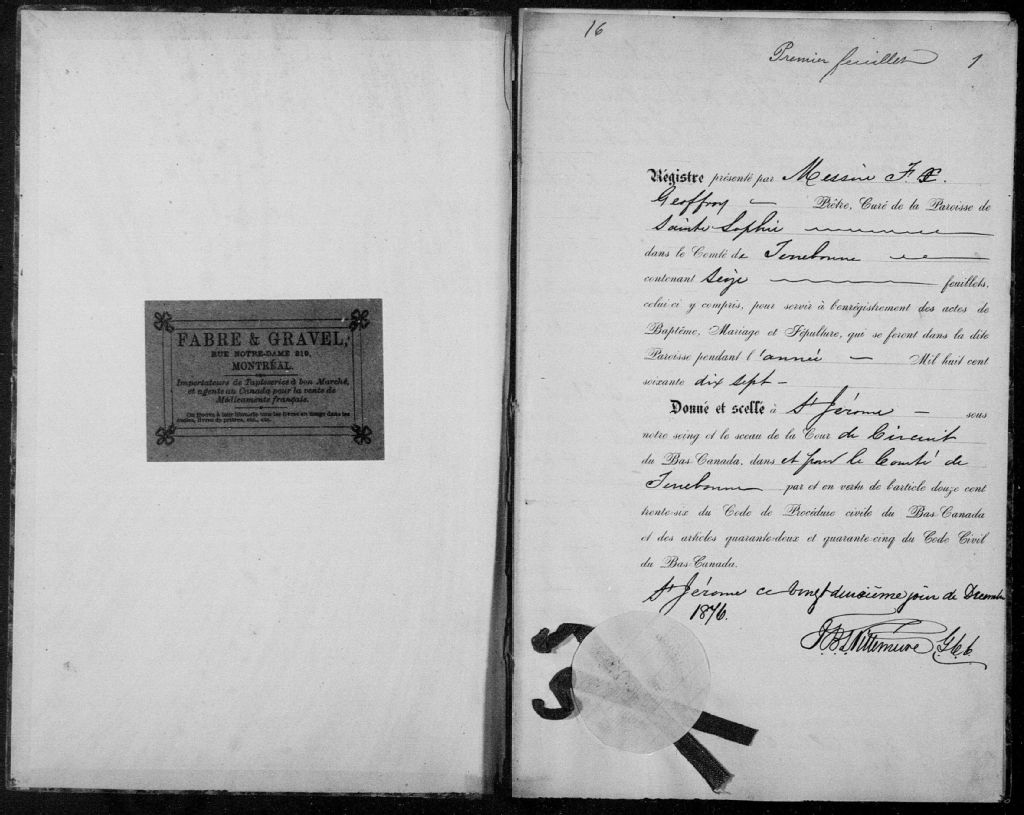 FABRE & GRAVEL,
RUE NOTRE-DAME 219,
MONTRÉAL.
Importateurs de Tapisseries à bon Marché,
et agents au Canada pour la vente de
Médicaments français.
On trouve à leur librairie tous les livres en usage dans les
écoles, livres de prières, etc., etc.
16
Premier feuillet 1
Régistre présenté par Messire F. X.
Geoffroy — Prêtre, Curé de la Paroisse de
Sainte Sophie
dans le Comté de Terrebonne
contenant Seize feuillets,
celui-ci y compris, pour servir à l'enrégistrement des actes de
Baptême, Mariage et Sépulture, qui se feront dans la dite
Paroisse pendant l'année — Mil huit cent
soixante dix sept —
Donné et scellé à St Jérome — sous
notre seing et le sceau de la Cour de Circuit
du Bas-Canada, dans et pour le Comté de
Terrebonne par et en vertu de l'article douze cent
trente-six du Code de Procédure civile du Bas-Canada
et des articles quarante-deux et quarante-cinq du Code Civil
du Bas-Canada.
St Jérome ce vingt deuxième jour de Decembre
1876.
J. B. L. Villemure G.C.C.